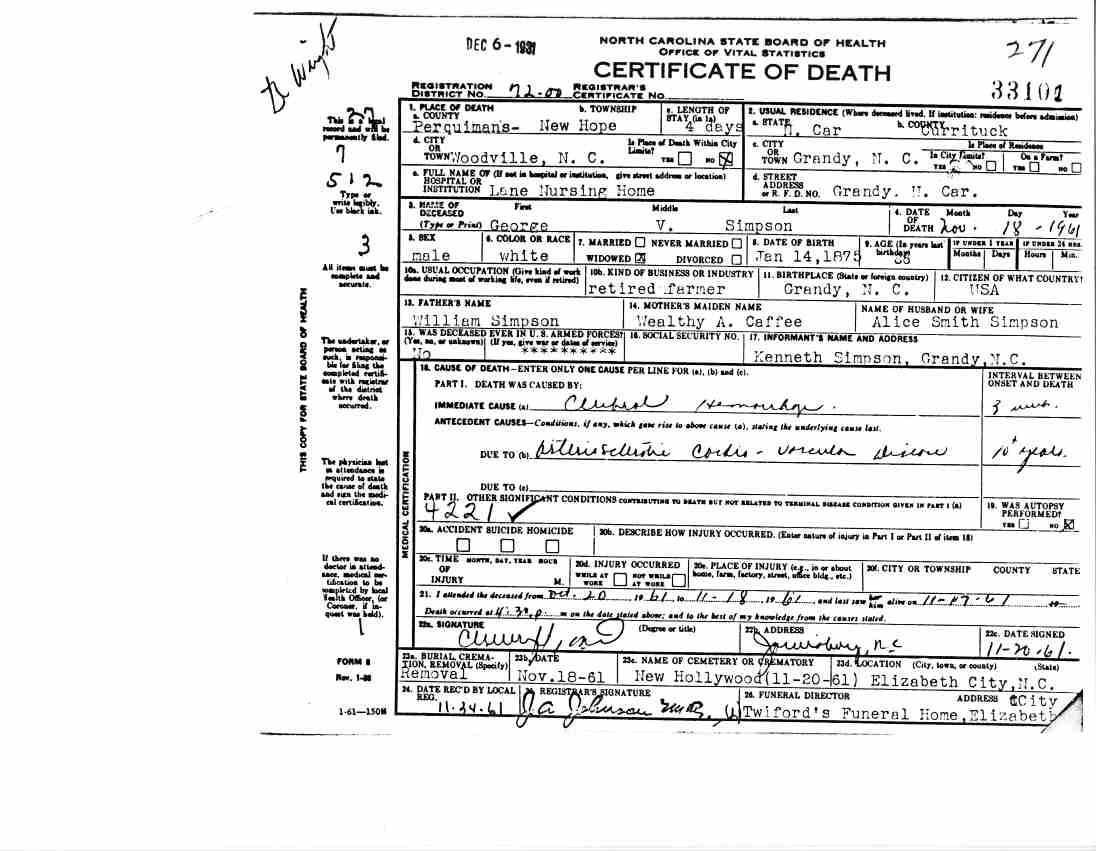 DEC 6 - 1961
NORTH CAROLINA STATE BOARD OF HEALTH
OFFICE OF VITAL STATISTICS
CERTIFICATE OF DEATH
271
33101
REGISTRATION DISTRICT NO. 72-00 REGISTRAR'S CERTIFICATE NO.
This is a legal record and will be permanently filed.
7
512
Type or write legibly. Use black ink.
3
All items must be complete and accurate.
THIS COPY FOR STATE BOARD OF HEALTH
The undertaker, or person acting as such, is responsible for filing the completed certificate with registrar of the district where death occurred.
The physician last in attendance is required to state the cause of death and sign the medical certification.
If there was no doctor in attendance, medical certification to be completed by local Health Officer, (or Coroner, if inquest was held).
1
FORM 8
1-61-150M
1. PLACE OF DEATH
a. COUNTY Perquimans-
b. TOWNSHIP New Hope
c. LENGTH OF STAY (in 1a) 4 days
2. USUAL RESIDENCE (Where deceased lived. If institution: residence before admission)
a. STATE N. Car
b. COUNTY Currituck
d. CITY OR TOWN Woodville, N. C.
Is Place of Death Within City Limits? YES NO
c. CITY OR TOWN Grandy, N. C.
Is Place of Residence
In City Limits? YES NO
On a Farm? YES NO
e. FULL NAME OF (If not in hospital or institution, give street address or location)
HOSPITAL OR INSTITUTION Lane Nursing Home
d. STREET ADDRESS or R. F. D. NO. Grandy. N. Car.
3. NAME OF DECEASED (Type or Print)
First Middle Last
George V. Simpson
4. DATE OF DEATH Month Day Year
Nov. 18 - 1961
5. SEX male
6. COLOR OR RACE white
7. MARRIED NEVER MARRIED
WIDOWED DIVORCED
8. DATE OF BIRTH
Jan 14,1875
9. AGE (In years last birthday)
IF UNDER 1 YEAR Months Days
IF UNDER 24 HRS. Hours Min.
10a. USUAL OCCUPATION (Give kind of work done during most of working life, even if retired)
10b. KIND OF BUSINESS OR INDUSTRY
retired farmer
11. BIRTHPLACE (State or foreign country)
Grandy, N. C.
12. CITIZEN OF WHAT COUNTRY?
USA
13. FATHER'S NAME
William Simpson
14. MOTHER'S MAIDEN NAME
Wealthy A. Caffee
NAME OF HUSBAND OR WIFE
Alice Smith Simpson
15. WAS DECEASED EVER IN U. S. ARMED FORCES?
(Yes, no, or unknown) (If yes, give war or dates of service)
No *********
16. SOCIAL SECURITY NO.
17. INFORMANT'S NAME AND ADDRESS
Kenneth Simpson, Grandy,N.C.
MEDICAL CERTIFICATION
18. CAUSE OF DEATH—ENTER ONLY ONE CAUSE PER LINE FOR (a), (b) and (c).
INTERVAL BETWEEN ONSET AND DEATH
PART I. DEATH WAS CAUSED BY:
IMMEDIATE CAUSE (a) Cerebral Hemorrhage. 3
ANTECEDENT CAUSES—Conditions, if any, which gave rise to above cause (a), stating the underlying cause last.
DUE TO (b) Arteriosclerotic Cardio-vascular Disease 10+ years.
DUE TO (c)
PART II. OTHER SIGNIFICANT CONDITIONS CONTRIBUTING TO DEATH BUT NOT RELATED TO TERMINAL DISEASE CONDITION GIVEN IN PART I (a)
4221
19. WAS AUTOPSY PERFORMED?
YES NO
20a. ACCIDENT SUICIDE HOMICIDE
20b. DESCRIBE HOW INJURY OCCURRED. (Enter nature of injury in Part I or Part II of item 18)
20c. TIME OF INJURY MONTH, DAY, YEAR HOUR M.
20d. INJURY OCCURRED
WHILE AT WORK NOT WHILE AT WORK
20e. PLACE OF INJURY (e.g., in or about home, farm, factory, street, office bldg., etc.)
20f. CITY OR TOWNSHIP COUNTY STATE
21. I attended the deceased from Oct. 20 1961 to 11-18, 1961, and last saw her him alive on 11-17-61 19
Death occurred at 4:30 p. m on the date stated above; and to the best of my knowledge from the causes stated.
22a. SIGNATURE (Degree or title)
22b. ADDRESS
22c. DATE SIGNED
11-20-61.
23a. BURIAL, CREMATION, REMOVAL (Specify)
Removal
23b. DATE
Nov.18-61
23c. NAME OF CEMETERY OR CREMATORY
New Hollywood(11-20-61)
23d. LOCATION (City, town, or county) (State)
Elizabeth City,N.C.
24. DATE REC'D BY LOCAL REG.
11-24-61
25. REGISTRAR'S SIGNATURE
J.A. Johnson
26. FUNERAL DIRECTOR ADDRESS City
Twiford's Funeral Home,Elizabeth